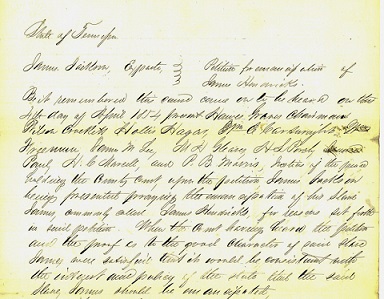 State of Tennessee
James Jackson, Exparte, Petition for emancipation of
James Hendricks
Be it remembered this cause came on to be heard on the
4th day of April 1854 present Chairman
Crockett Hollis
Freeman James M.
and P. B. Harris, Justices of the peace
holding the County Court upon the petition James Jackson
having presented praying the emancipation of his Slave
James, commonly called James Hendricks, for reasons set forth
in said petition. When the Court having heard the petition
and the proof as to the good character of said slave
James were satisfied that it would be consistent with
the interest and policy of the state that the said
slave James should be emancipated